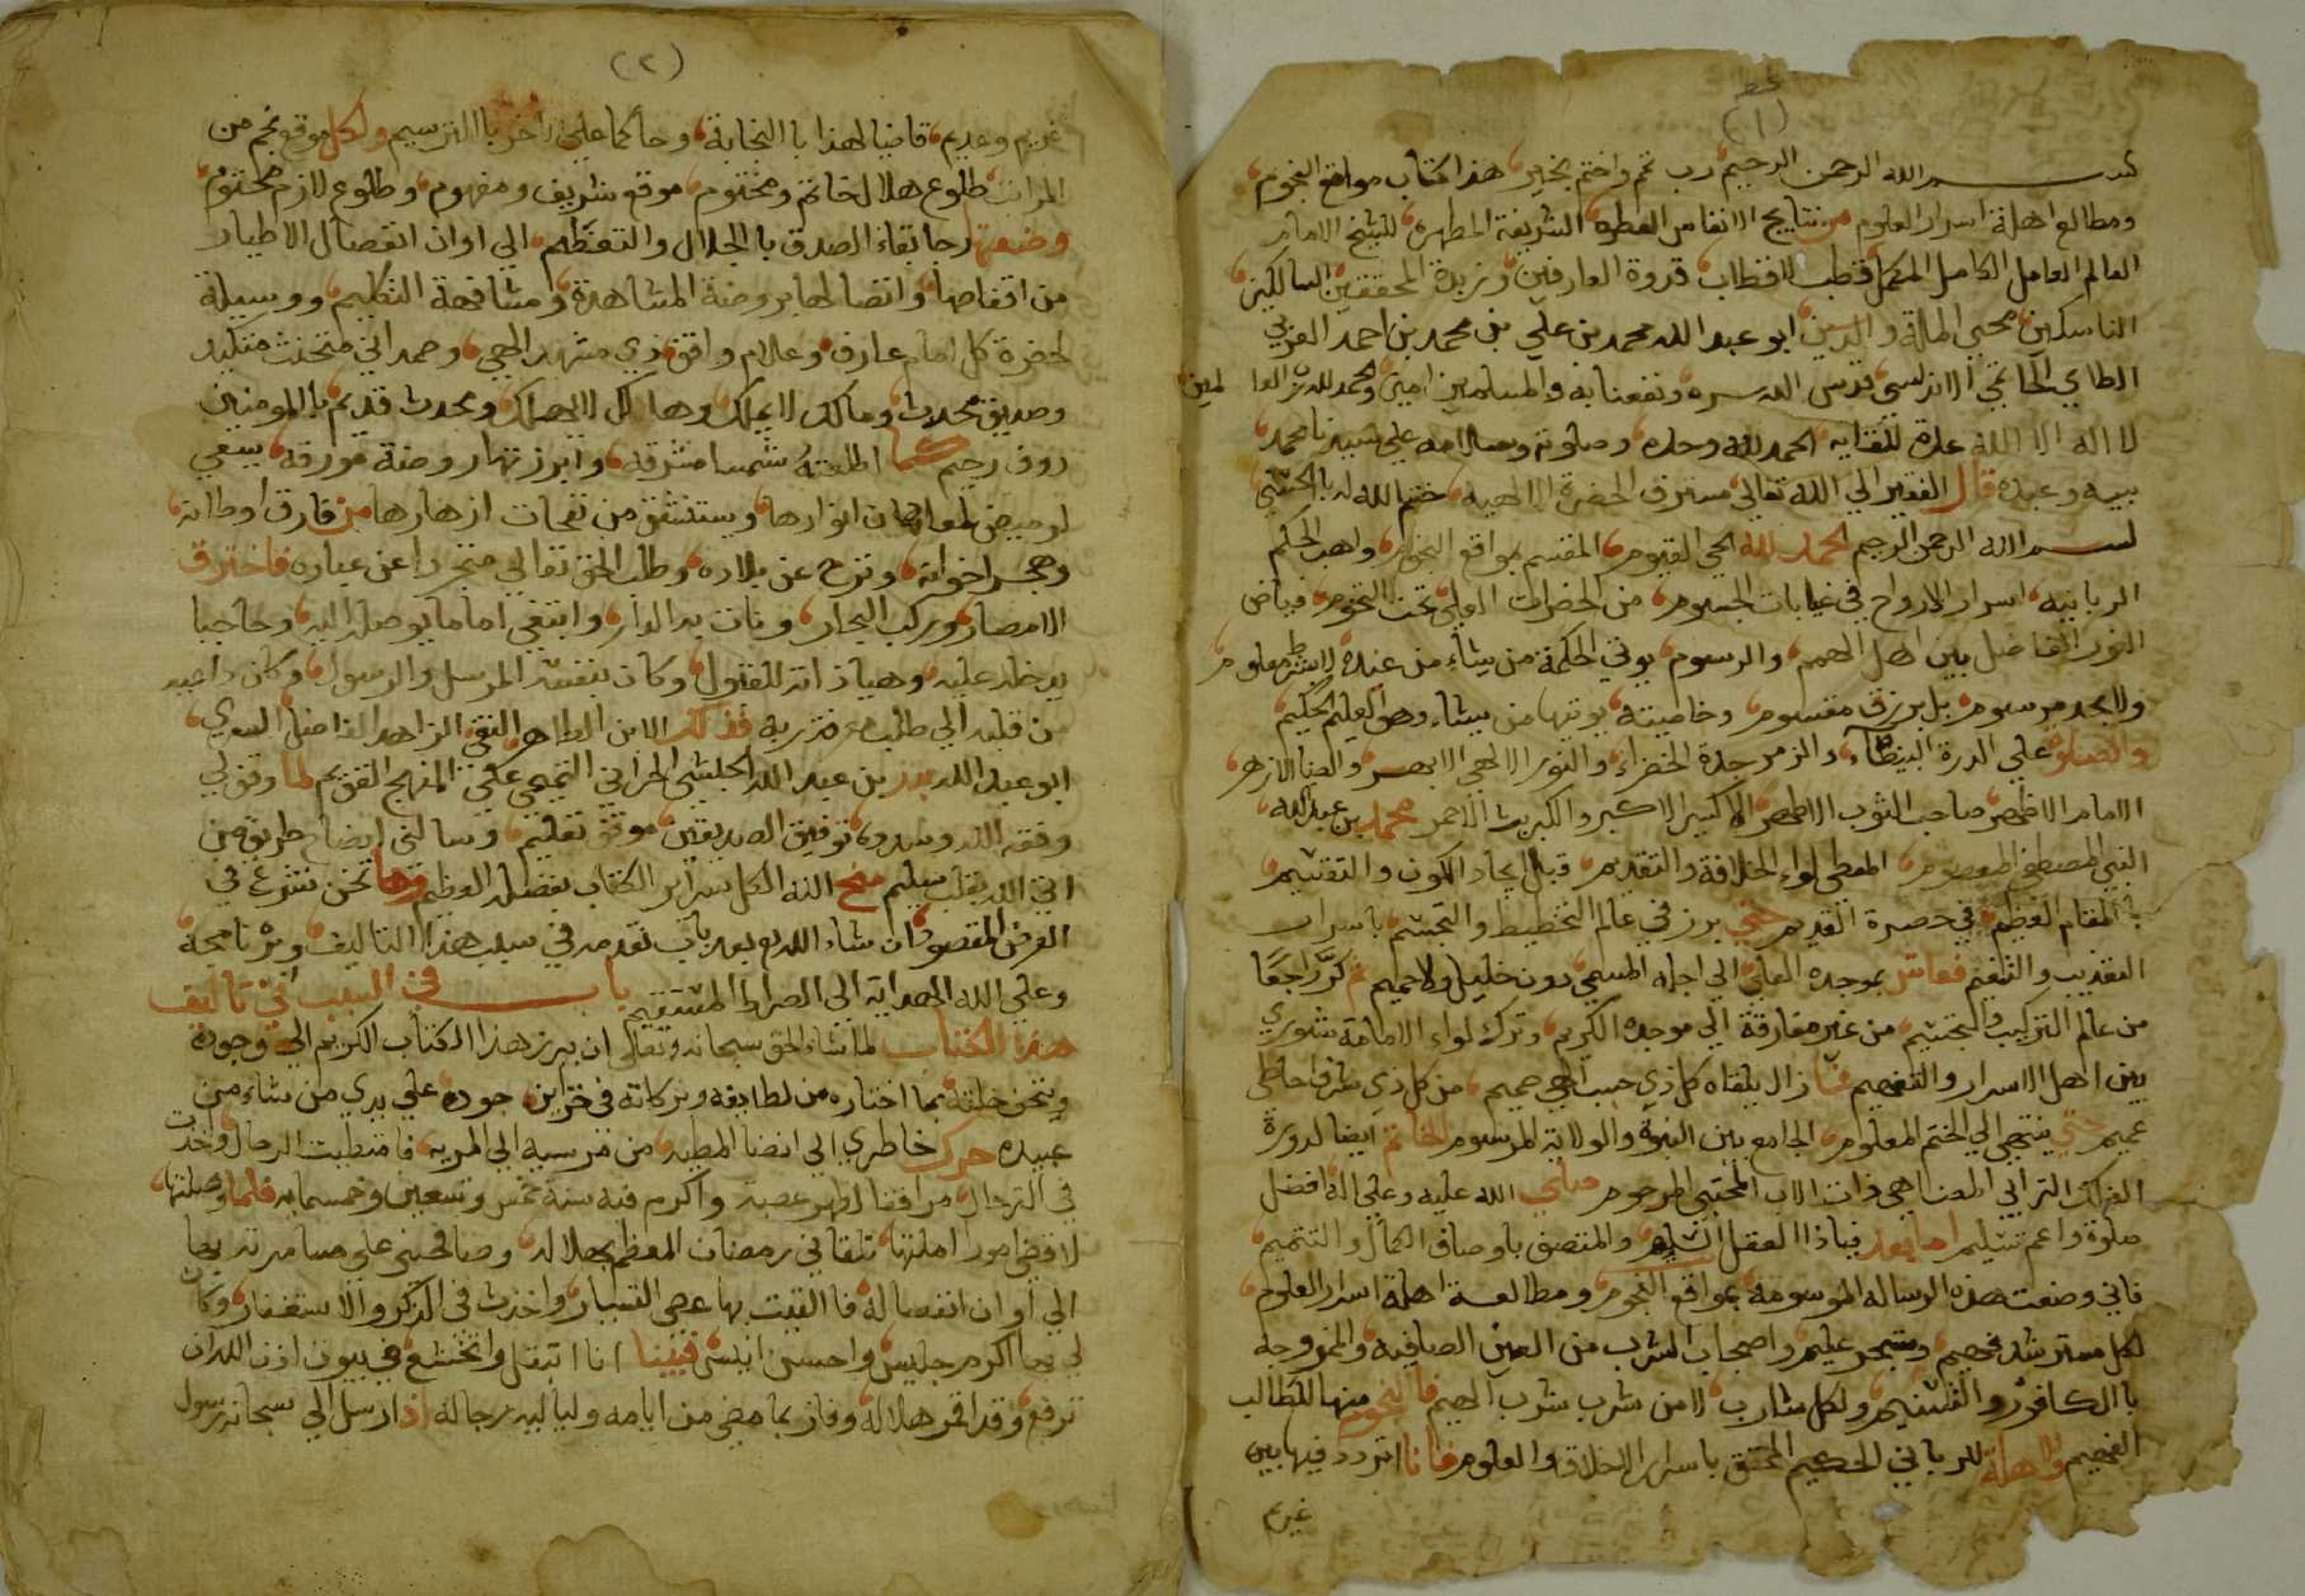 (١)
بسم الله الرحمن الرحيم رب تمم واختم بخير هذا كتاب مواقع النجوم
ومطالع اهلة اسرار العلوم من نتايج الانفاس العطره الشريفة المطهره للشيخ الامام
العالم العامل الكامل المكمل قطب الاقطاب قدوة العارفين وزبدة المحققين السالكين
الناسكين محيي الملة والدين ابو عبد الله محمد بن علي بن محمد بن احمد العربي
الطاي الحاتمي الاندلسي قدس الله سره ونفعنا به والمسلمين امين والحمد لله رب العالمين
لا اله الا الله عدة للقايه الحمد لله وحده وصلوته وسلامه علي سيدنا محمد
نبيه وعبده قال الفقير الي الله تعالي مسترق الحضرة الالهيه ختم الله له بالحسني
بسم الله الرحمن الرحيم الحمد لله الحي القيوم المقسم بمواقع النجوم واهب الحكم
الربانيه اسرار الارواح في غيابات الجسوم من الحضرات العلي تحت النجوم فياض
النور الفاضل بين اهل الهمم والرسوم يوتي الحكمة من يشاء من عنده لا بشرط معلوم
ولا بحد مرسوم بل برزق مقسوم وخاصيته يوتيها من يشاء وهو العليم الحكيم
والصلوة علي الدرة البيضاء والزمرجدة الخضراء والنور الالهي الابهر والضيا الازهر
الامام الاظهر صاحب الثوب الاطهر الاكسير الاكبر والكبريت الاحمر محمد بن عبد الله
النبي المصطفي المعصوم المعطي لواء الخلافة والتقديم قبل ايجاد الكون والتقسيم
بالمقام العظيم في حضرة القديم حتي برز في عالم التخطيط والتجسيم باسرار
التعذيب والتنعيم فعاش بموجده العلي الي اجله المسمي دون خليل ولا حميم ثم كر راجعا
من عالم التركيب والتجسيم من غير مفارقة الي موجده الكريم وترك لواء الامامة شوري
بين اهل الاسرار والتفهيم فما زال يلقاه كل ذي حسب الهي صميم من كل ذي شرف احاطي
عميم حتي ينتهي الي الختم المعلوم الجامع بين النبوة والولاية المرسوم الخاتم ايضا لدورة
الفلك الترابي المضاهي ذات الاب المجتبي المرحوم صلي الله عليه وعلي اله افضل
صلوة واعم تسليم اما بعد فيا ذا العقل السليم والمتصف باوصاف الكمال والتتميم
فاني وضعت هذه الرساله الموسومة بمواقع النجوم ومطالعة اهلة اسرار العلوم
لكل مسترشد فهيم ومتبحر عليم واصحاب الشرب من العين الصافيه والممزوجه
بالكافور والتسنيم ولكل شارب لا من شرب شرب الهيم فالنجوم منها للطالب
الفهيم والاهلة للرباني الحكيم المحقق باسرار الاخلاق والعلوم فانا اتردد فيها بين
غريم
(٢)
غريم وعديم قاضيا لهذا بالنجابة وحاكما علي اخر بالترسيم ولكل موقع نجم من
المراتب طلوع هلال خاتم ومختوم موقع شريف ومفهوم وطلوع لازم محتوم
وضعتها رجا بقاء الصدق بالجلال والتعظيم الي اوان انفصال الاطيار
من اقفاصها واتصالها بروضة المشاهدة ومشافهة التكليم ووسيلة
لحضرة كل امام عارف وعلام واقف ذي مشهد الهي وحمداني متحنث متكلم
وصديق محدث ومالك لا يملك وهالك لا يهلك ومحدث قديم بالمومنين
روف رحيم كما اطلعته شمسا مشرقه وابرزتها روضة مورقه يسعي
لوميض لمعان انوارها ويستنشق من نفحات ازهارها من فارق اوطانه
وهجر اخوانه ونزح عن بلاده وطلب الحق تعالي متجردا عن عباده فاخترق
الامصار وركب البحار ونات به الدار وابتغي اماما يوصله اليه وحاجبا
يدخله عليه وهيا ذاته للقبول وكان بنفسه المرسل والرسول وكان داعيه
من قلبه الي طلب معرفة ربه فذلك الابن الطاهر التقي الزاهد الفاضل السري
ابو عبد الله بدر بن عبد الله الحبشي الحراني التميمي علي المنهج القويم لما وفق لي
وفقه الله وسدده توفيق الصديقين موفق تعليم وسالني ايضاح طريق من
اتي الله بقلب سليم منح الله الكل سراير الكتاب بفضله العظيم وها نحن نشرع في
الغرض المقصود ان شاء الله بعد باب نقدمه في سبب هذا التاليف وبرنامجه
وعلي الله الهداية الي الصراط المستقيم باب في السبب الي تاليف
هذا الكتاب لما شاء الحق سبحانه وتعالي ان يبرز هذا الكتاب الكريم الي وجوده
ويتحف خلقه بما اختاره من لطايفه وبركاته في خزاين جوده علي يدي من شاء من
عبيده حرك خاطري الي انضا المطيه من مرسيه الي المريه فامتطيت الرحال واخذت
في الترحال مرافقا لطهر عصبه واكرم فيه سنة خمس وتسعين وخمسمايه فلما وصلتها
لاقضي امورا املتها تلقاني رمضان المعظم بهلاله وصافحني علي مسامرته بها
الي اوان انفصاله فالقيت بها عصي التسيار واخذت في الذكر والاستغفار وكان
لي بها اكرم جليس واحسن انيس فبينا انا اتبتل واتخشع في بيوت اذن الله ان
ترفع وقد اقمر هلاله وفاز بما مضي من ايامه ولياليه رجاله اذ ارسل الي سبحانه رسول